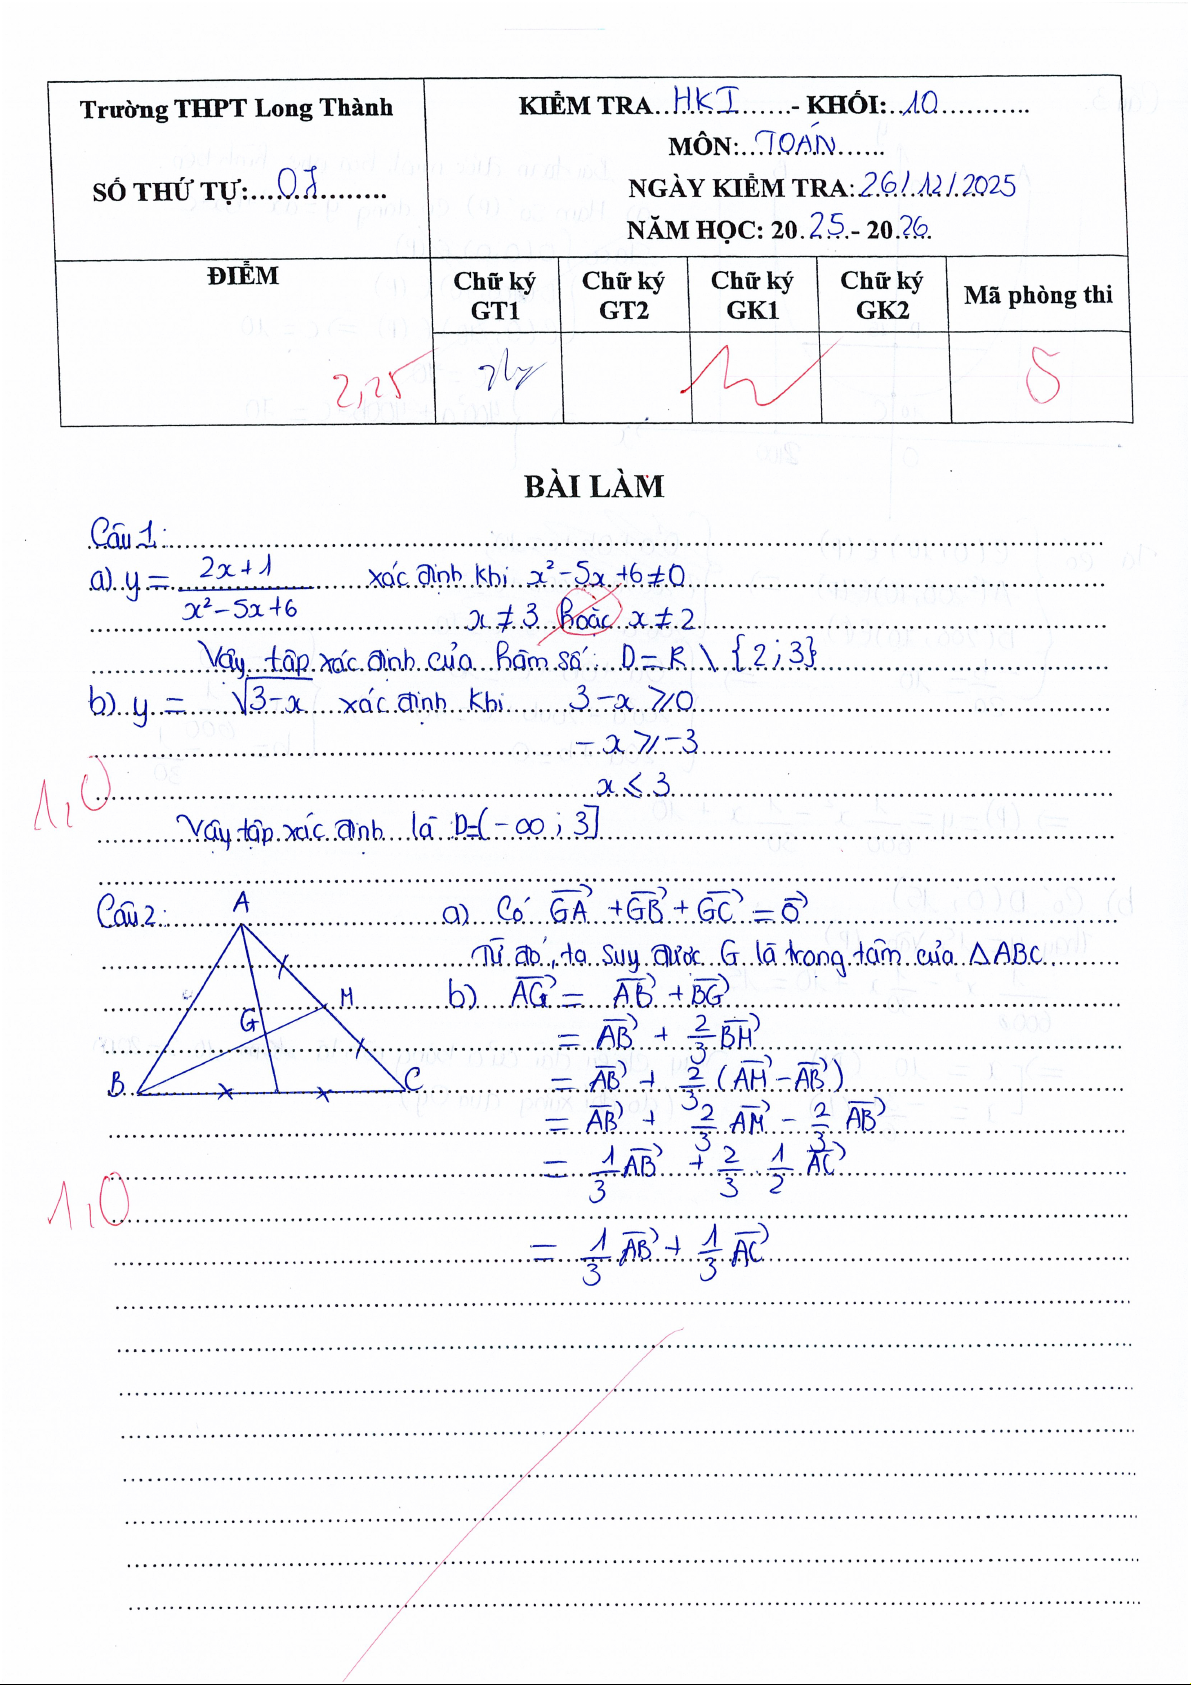 Trường THPT Long Thành
SỐ THỨ TỰ:....07.........
KIỂM TRA..HKI.......- KHỐI:..10............
MÔN:..TOÁN......
NGÀY KIỂM TRA:26/12/2025
NĂM HỌC: 20.25.- 20.26.
ĐIỂM
Chữ ký GT1
Chữ ký GT2
Chữ ký GK1
Chữ ký GK2
Mã phòng thi
2,25
5
BÀI LÀM
Câu 1:
a) y = (2x+1)/(x²-5x+6) xác định khi x²-5x+6≠0
x ≠ 3 hoặc x ≠ 2
Vậy tập xác định của hàm số: D = R \ {2;3}
b) y = √(3-x) xác định khi 3-x ≥ 0
-x ≥ -3
x ≤ 3
1,0
Vậy tập xác định là D=(-∞; 3]
Câu 2:
A
M
G
B
C
a) Có →GA + →GB + →GC = →0
Từ đó, ta suy được G là trong tâm của ΔABC
b) →AG = →AB + →BG
= →AB + 2/3 →BM
= →AB + 2/3 (→AM - →AB)
= →AB + 2/3 →AM - 2/3 →AB
= 1/3 →AB + 2/3 . 1/2 →AC
1,0
= 1/3 →AB + 1/3 →AC